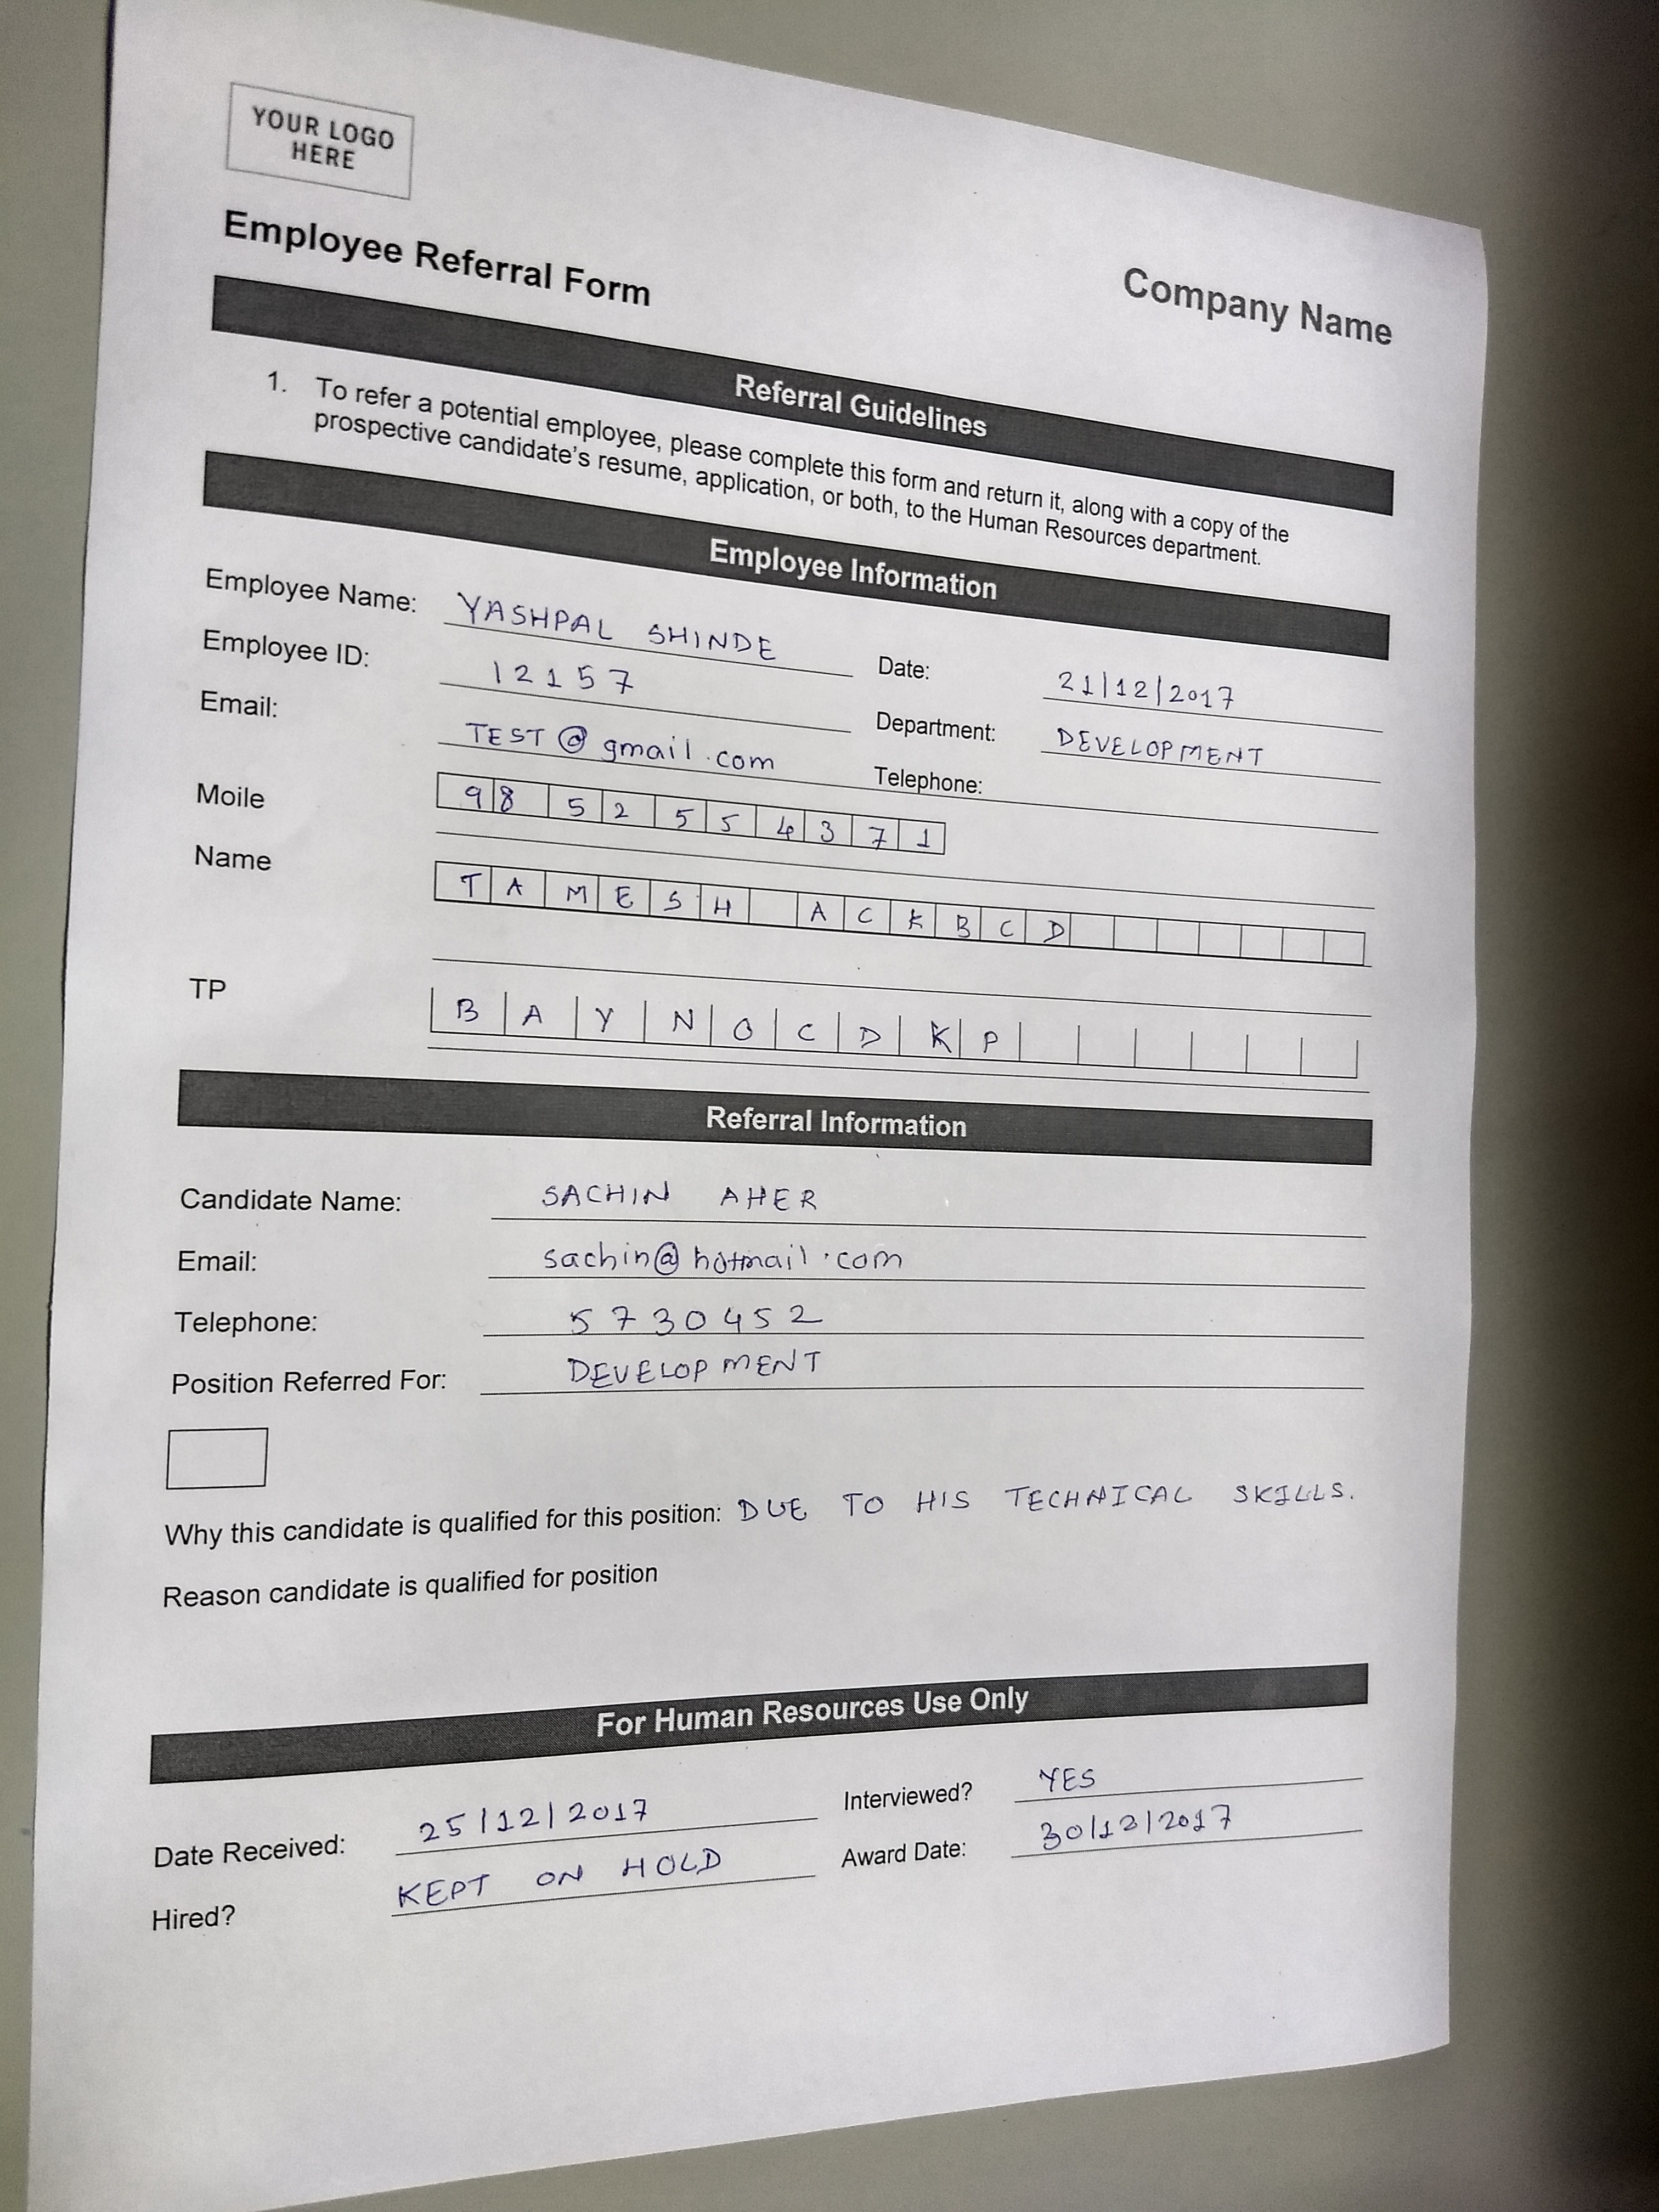 YOUR LOGO
HERE
Employee Referral Form
Company Name
Referral Guidelines
1. To refer a potential employee, please complete this form and return it, along with a copy of the
prospective candidate's resume, application, or both, to the Human Resources department.
Employee Information
Employee Name: YASHPAL SHINDE Date: 21/12/2017
Employee ID: 12157 Department: DEVELOPMENT
Email: TEST@gmail.com Telephone:
Moile 9852554371
Name TAMESH ACKBCD
TP BAYNOCDKP
Referral Information
Candidate Name: SACHIN AHER
Email: sachin@hotmail.com
Telephone: 5730452
Position Referred For: DEVELOPMENT
Why this candidate is qualified for this position: DUE TO HIS TECHNICAL SKILLS.
Reason candidate is qualified for position
For Human Resources Use Only
Date Received: 25/12/2017 Interviewed? YES
Hired? KEPT ON HOLD Award Date: 30/12/2017